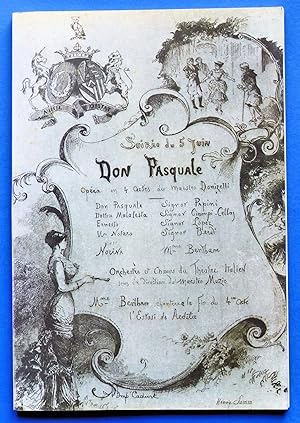 Soirée du 5 Juin
Don Pasquale
Opéra en 4 Actes du Maestro Donizetti
Don Pasquale Signor Papini
Dottro Malatesta Signor Ciampi-Cellaj
Ernesto Signor
Un Notaro Signor Bardi
Norina Mme Bertham
Orchestre et Choeurs du Théatre Italien
sous la Direction du Maestro Muzio
Mme chantera à la fin du 4me Acte
l'Estasi de